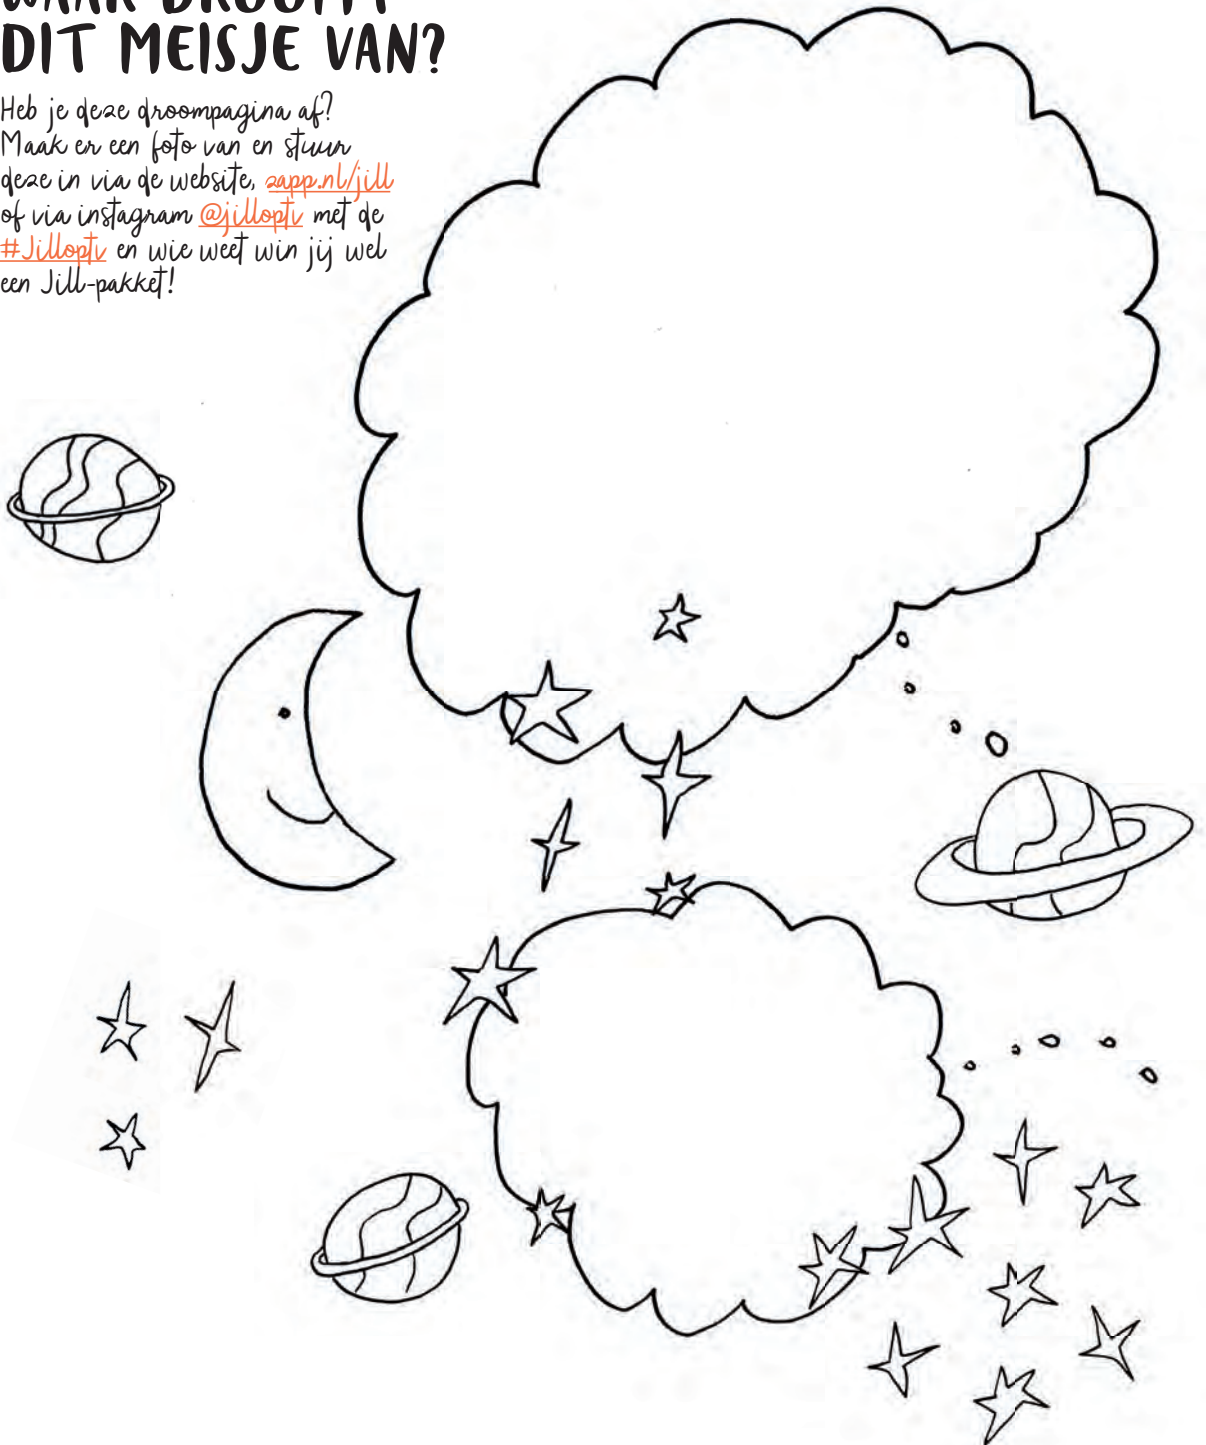 WAAR DROOMT
DIT MEISJE VAN?
Heb je deze droompagina af?
Maak er een foto van en stuur
deze in via de website, zapp.nl/jill
of via instagram @jilloptv met de
#Jilloptv en wie weet win jij wel
een Jill-pakket!